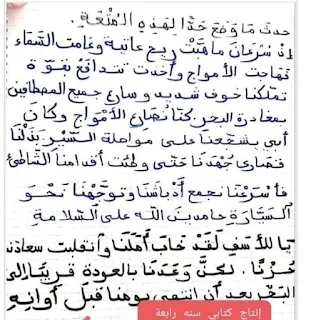 حدث مَا وَضَعَ حَدًّا لِهَذِهِ المُتْعَةِ
إذْ سُرْعَانَ مَا هَبَّتْ رِيحٌ عَاتِيَة وغَامت السَّمَاء
فهَاجت الأمواج وأخذت تتدافع بقوة
تملكنا خوف شديد وسارع جميع المصطافين
بمغادرة البحر. كنا نُصارع الأمْوَاج وكان
أبي يشجّعنا على مواصلة السَّيْر بَذَلْنَا
قصارى جُهْدنا حتى وطئت أقدامنا الشاطئ
فأسْرَعْنَا نجمع أدْباشنا وتوجّهْنَا نَحْوَ
السَيّارة حامدين الله على السّلامة
يَا للأسَفِ لَقَدْ خَابَ أَمَلُنَا وانقلبت سعادتنا
حُزْنًا. لكنْ وَعَدَنَا بالعودة قريبًا إلى
البَحْر بعد أن انتهى يومنا قبل أوانه
إنتاج كتابي سنه رابعة